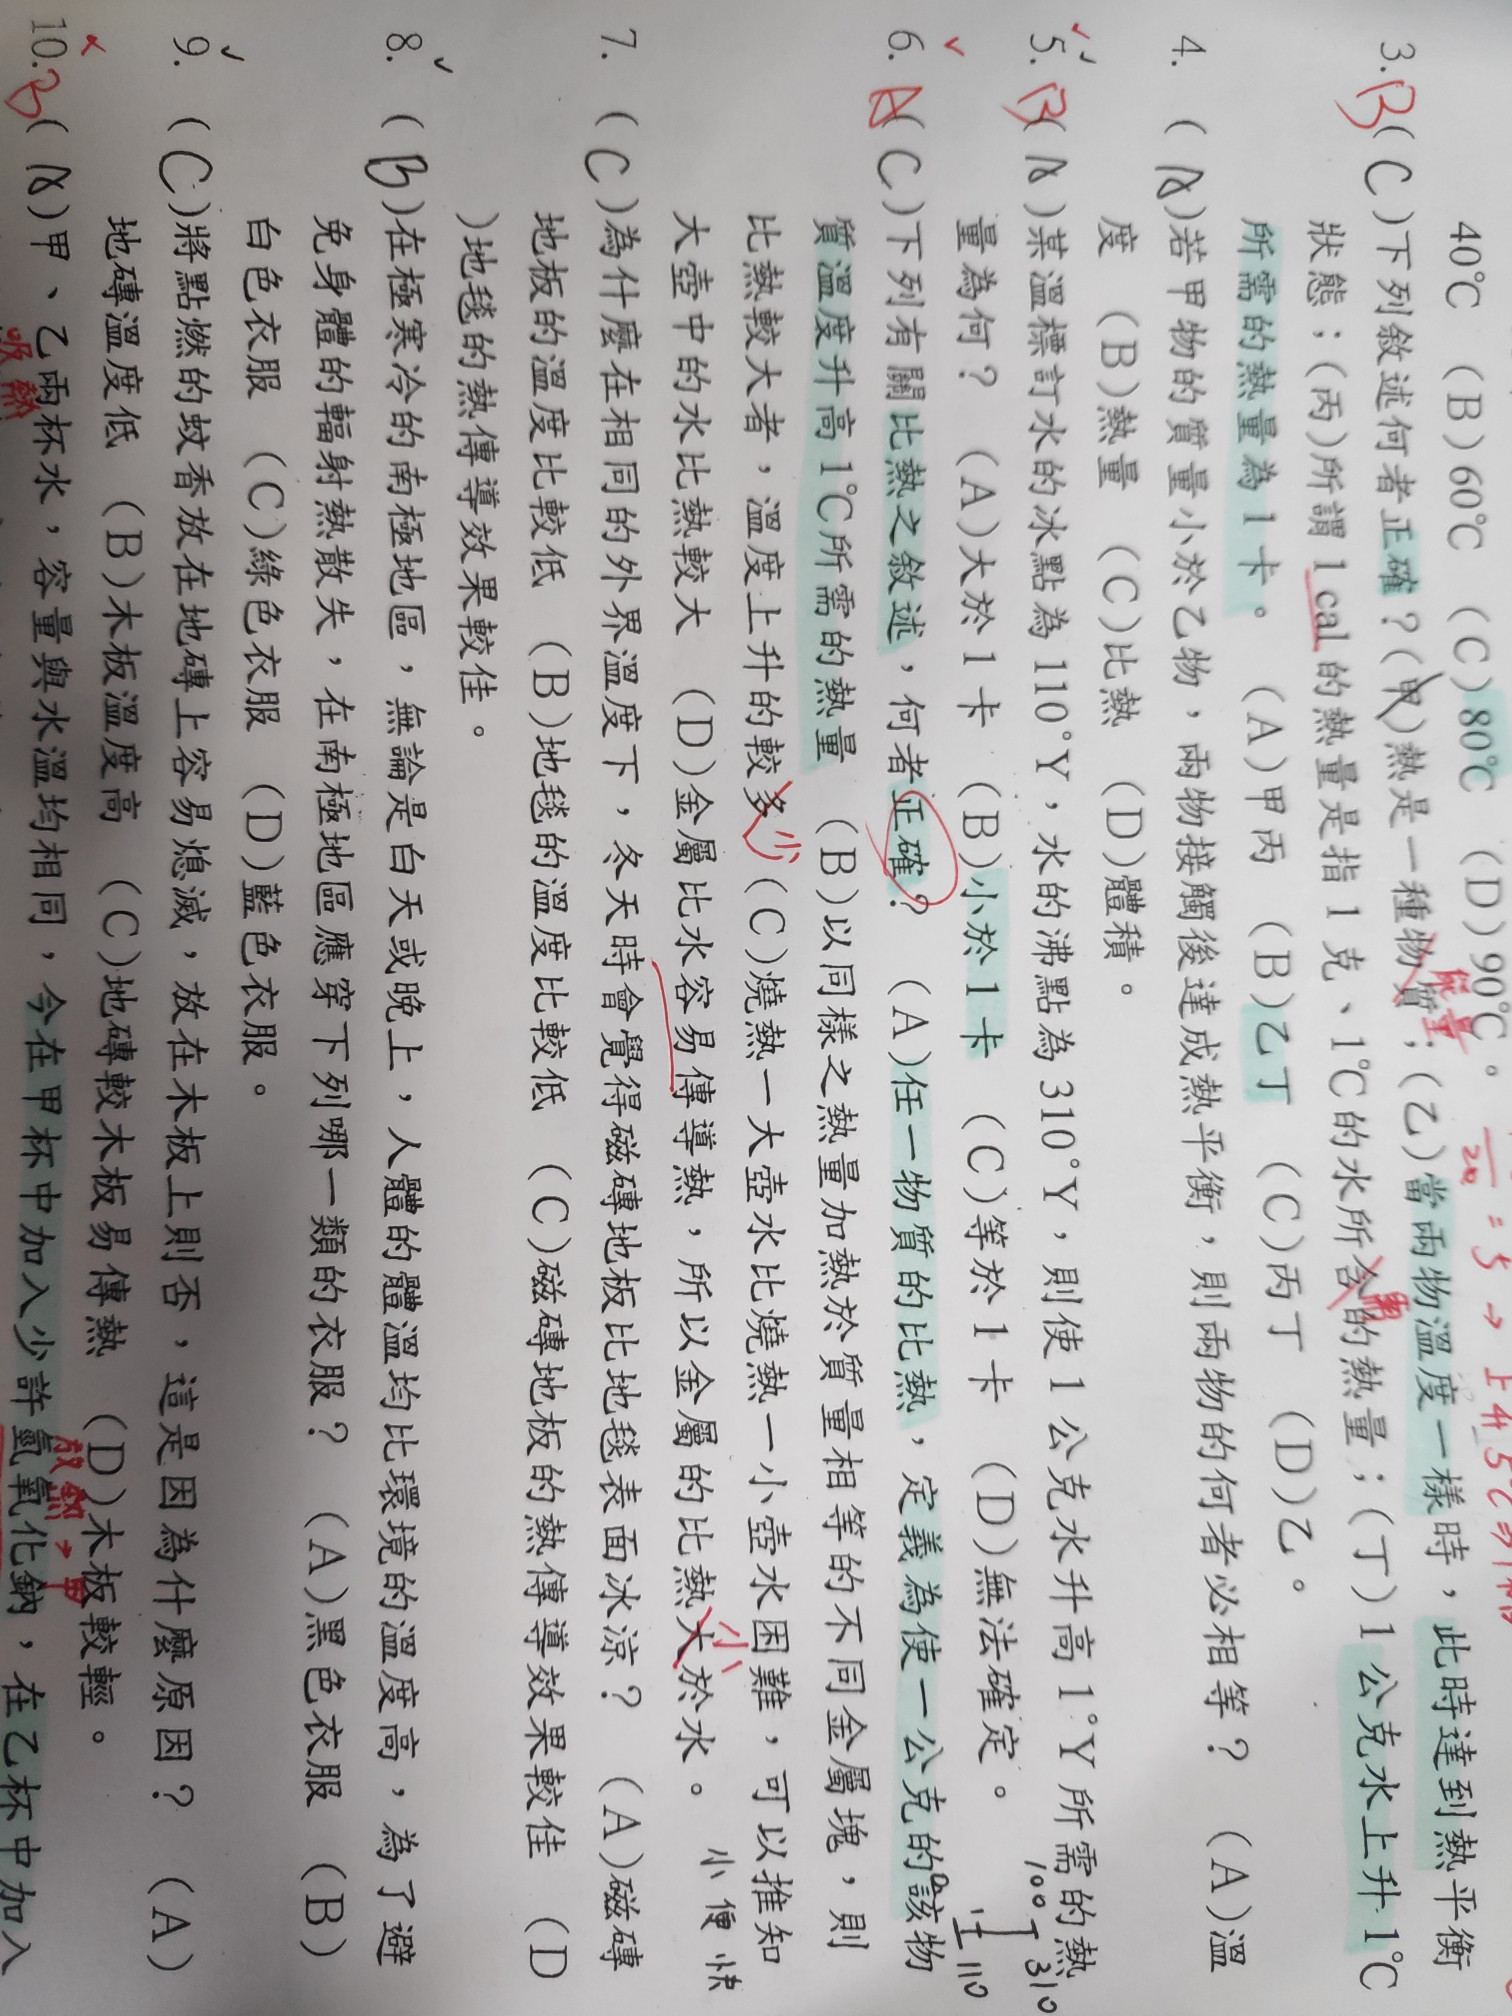 40℃ (B)60℃ (C)80℃ (D)90℃。
20 = 5 → 上升5℃
3.B(C)下列敘述何者正確?(甲)熱是一種物質;(乙)當兩物溫度一樣時,此時達到熱平衡
能量
狀態;(丙)所謂 1 cal 的熱量是指 1 克、1℃的水所含的熱量;(丁)1 公克水上升 1℃
需
所需的熱量為 1 卡。 (A)甲丙 (B)乙丁 (C)丙丁 (D)乙。
4. (A)若甲物的質量小於乙物,兩物接觸後達成熱平衡,則兩物的何者必相等? (A)溫
度 (B)熱量 (C)比熱 (D)體積。
5.B(A)某溫標訂水的冰點為 110°Y,水的沸點為 310°Y,則使 1 公克水升高 1°Y 所需的熱
量為何? (A)大於 1 卡 (B)小於 1 卡 (C)等於 1 卡 (D)無法確定。
100 310
0 110
6.A(C)下列有關比熱之敘述,何者正確? (A)任一物質的比熱,定義為使一公克的該物
質溫度升高 1℃所需的熱量 (B)以同樣之熱量加熱於質量相等的不同金屬塊,則
比熱較大者,溫度上升的較多少(C)燒熱一大壺水比燒熱一小壺水困難,可以推知
大壺中的水比熱較大 (D)金屬比水容易傳導熱,所以金屬的比熱大於水。
小
小便快
7. (C)為什麼在相同的外界溫度下,冬天時會覺得磁磚地板比地毯表面冰涼? (A)磁磚
地板的溫度比較低 (B)地毯的溫度比較低 (C)磁磚地板的熱傳導效果較佳 (D
)地毯的熱傳導效果較佳。
8. (B)在極寒冷的南極地區,無論是白天或晚上,人體的體溫均比環境的溫度高,為了避
免身體的輻射熱散失,在南極地區應穿下列哪一類的衣服? (A)黑色衣服 (B)
白色衣服 (C)綠色衣服 (D)藍色衣服。
9. (C)將點燃的蚊香放在地磚上容易熄滅,放在木板上則否,這是因為什麼原因? (A)
地磚溫度低 (B)木板溫度高 (C)地磚較木板易傳熱 (D)木板較輕。
放熱→甲
10.B(A)甲、乙兩杯水,容量與水溫均相同,今在甲杯中加入少許氫氧化鈉,在乙杯中加入
吸熱